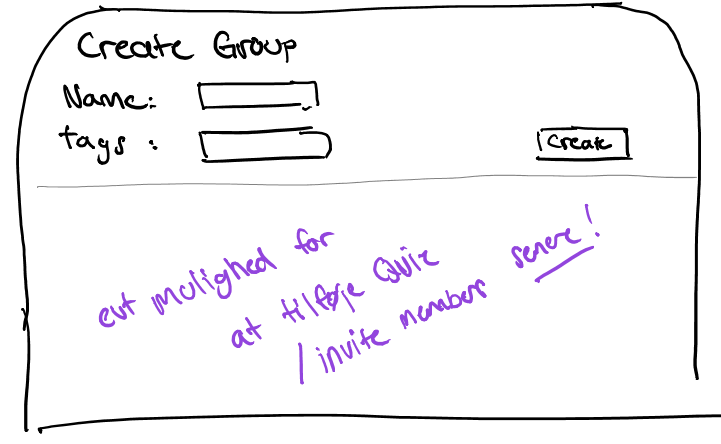 Create Group
Name:
tags :
Create
evt mulighed for
at tilføje Quiz
/ invite members senere!